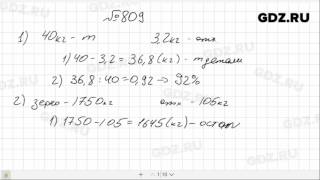 GDZ.RU
№809
1) 40кг - m 3,2кг - отх
1) 40 - 3,2 = 36,8 (кг) - m детали
2) 36,8 : 40 = 0,92 → 92%
2) зерно - 1750кг отх - 105кг
1) 1750 - 105 = 1645 (кг) - остат